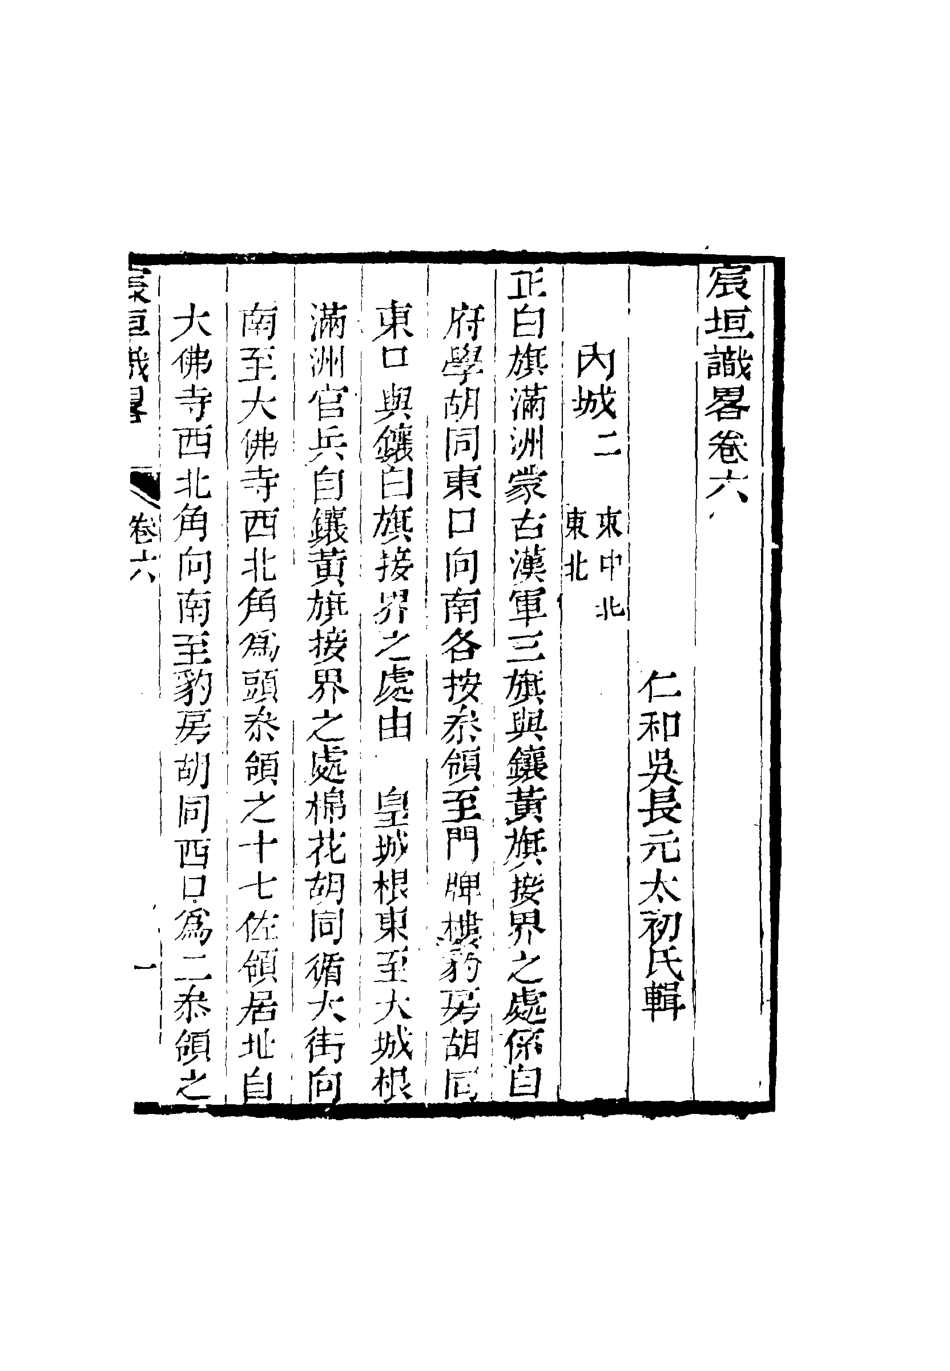 宸垣識畧卷六
仁和吳長元太初氏輯
內城二 東中北 東北
正白旗滿洲蒙古漢軍三旗與鑲黃旗接界之處係自
府學胡同東口向南各按叅領至門牌樓豹房胡同
東口與鑲白旗接界之處由 皇城根東至大城根
滿洲官兵自鑲黃旗接界之處棉花胡同循大街向
南至大佛寺西北角爲頭叅領之十七佐領居址自
大佛寺西北角向南至豹房胡同西口爲二叅領之
宸垣識畧 卷六 一